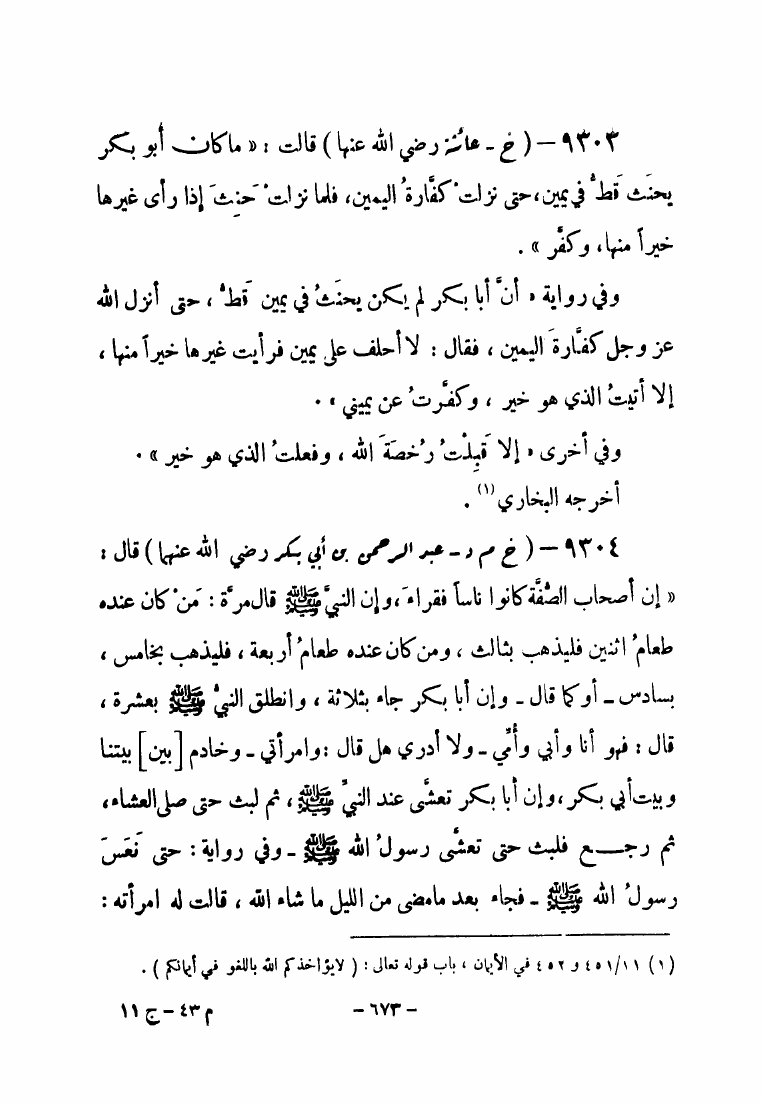 ٩٣٠٣ – ( خ - عائشة رضي الله عنها ) قالت : « ما كان أبو بكر
يحنَث قَطُّ في يمين، حتى نزلتْ كفَّارةُ اليمين، فلما نزلتْ حَنِثَ إذا رأى غيرها
خيراً منها، وكفَّر » .
وفي رواية « أنَّ أبا بكر لم يكن يحنَثُ في يمين قَطُّ ، حتى أنزل الله
عز وجل كفَّارةَ اليمين ، فقال : لا أحلف على يمين فرأيت غيرها خيراً منها ،
إلا أتيتُ الذي هو خير ، وكفَّرتُ عن يميني » .
وفي أخرى « إلا قَبِلْتُ رُخصَةَ الله ، وفعلتُ الذي هو خير » .
أخرجه البخاري (١) .
٩٣٠٤ – ( خ م د - عبد الرحمن بن أبي بكر رضي الله عنهما ) قال :
« إن أصحاب الصُّفَّة كانوا ناساً فقراءَ ، وإن النبيَّ ﷺ قال مرَّة : مَنْ كان عنده
طعامُ اثنين فليذهب بثالث ، ومن كان عنده طعامُ أربعة ، فليذهب بخامس ،
بسادس – أو كما قال - وإن أبا بكر جاء بثلاثة ، وانطلق النبيُّ ﷺ بعشرة ،
قال : فهو أنا وأبي وأُمِّي - ولا أدري هل قال : وامرأتي - وخادم [ بين ] بيتنا
وبيت أبي بكر ، وإن أبا بكر تعشَّى عند النبيِّ ﷺ ، ثم لبث حتى صلى العشاء،
ثم رجـــع فلبث حتى تعشَّى رسولُ الله ﷺ - وفي رواية : حتى نَعَسَ
رسولُ الله ﷺ - فجاء بعد ما مضى من الليل ما شاء الله ، قالت له امرأته :
(١) ٤٥١/١١ و ٤٥٢ في الأيمان ، باب قوله تعالى : ( لا يؤاخذكم الله باللغو في أيمانكم ) .
– ٦٧٣ –
م ٤٣ – ج ١١